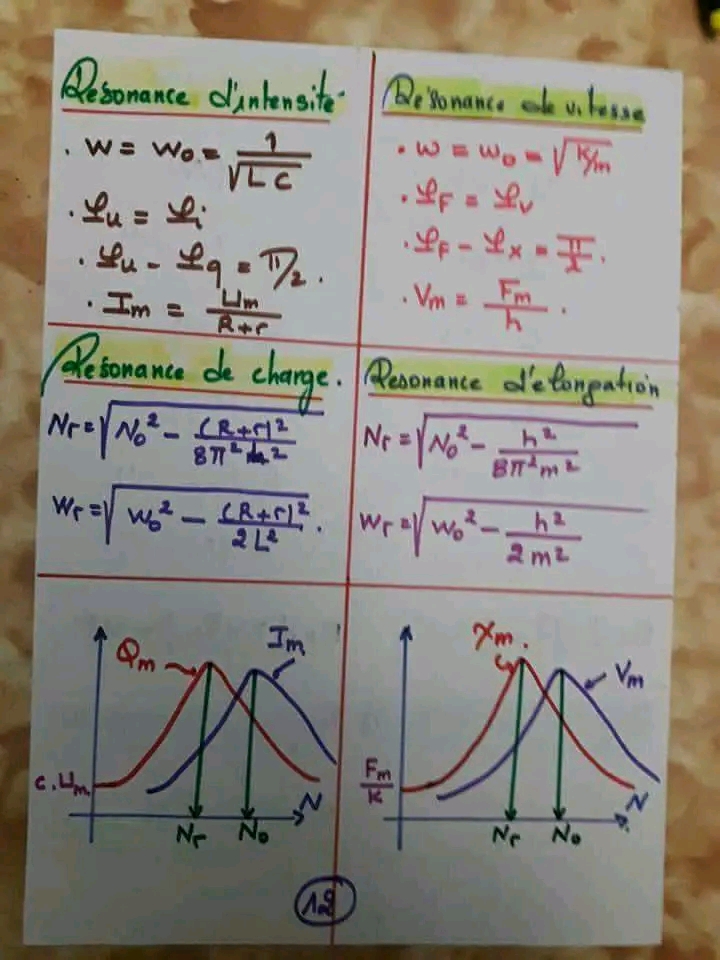 Résonance d'intensité
. W = W₀ = 1/√(LC)
. φu = φi
. φu - φq = π/2.
. Im = Um/(R+r)
Résonance de vitesse
. W = W₀ = √(K/m)
. φF = φv
. φF - φx = π/2.
. Vm = Fm/h .
Résonance de charge.
Nr = √(N₀² - (R+r)²/8π²L²)
Wr = √(W₀² - (R+r)²/2L²) .
Resonance d'élongation
Nr = √(N₀² - h²/8π²m²)
Wr = √(W₀² - h²/2m²)
Qm
Im
C.Um
Nr
N₀
N
Xm.
Vm
Fm/K
Nr
N₀
N
12